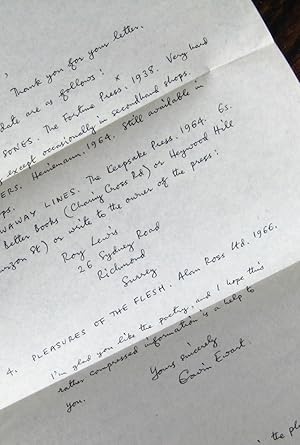 Thank you for your letter.
date are as follows:
SONGS. The Fortune Press. 1938. Very hard
except occasionally in secondhand shops.
ERS. Heinemann. 1964. Still available in
ps.
WAWAY LINES. The Keepsake Press. 1964. 6s.
Better Books (Charing Cross Rd) or Heywood Hill
urzon St) or write to the owner of the press:
Roy Lewis
26 Sydney Road
Richmond
Surrey
4. PLEASURES OF THE FLESH. Alan Ross Ltd. 1966.
I'm glad you like the poetry, and I hope this
rather compressed information is a help to
you.
Yours sincerely
Gavin Ewart.
the pl